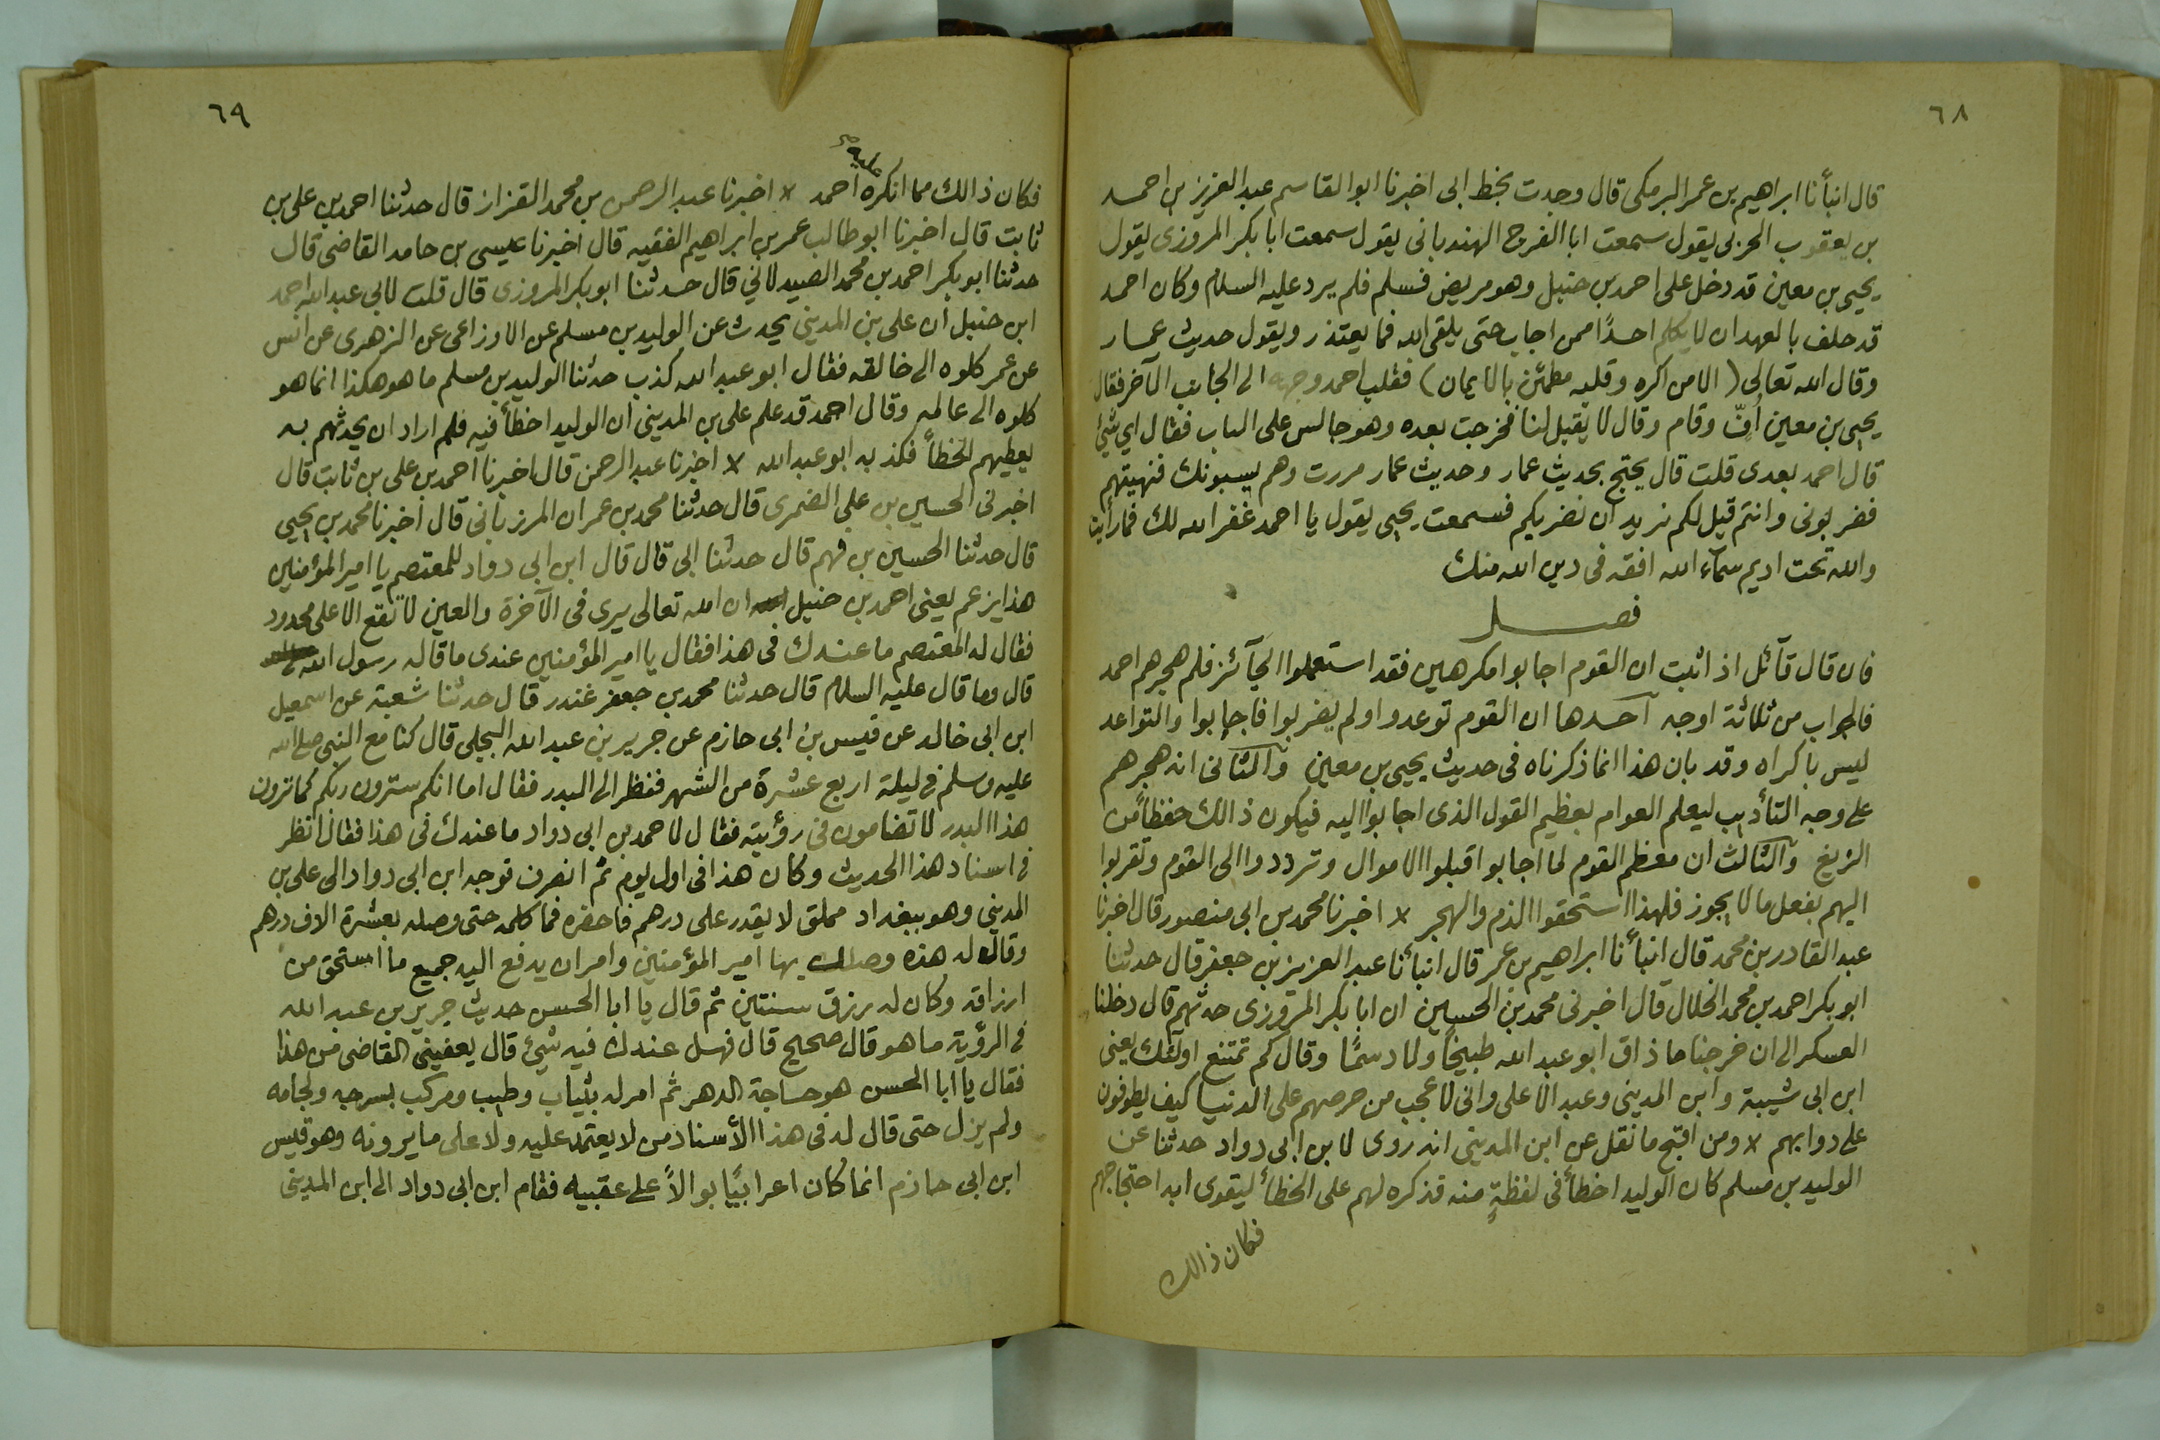 ٦٨
قال انبأنا ابراهيم بن عمر البرمكى قال وجدت بخط ابى اخبرنا ابوالقاسم عبد العزيز بن احمد
بن يعقوب الحربى يقول سمعت ابا الفرج الهندبانى يقول سمعت ابا بكر المروزى يقول
يحيى بن معين قد دخل على احمد بن حنبل وهو مريض فسلم فلم يرد عليه السلام وكان احمد
قد حلف بالعهد ان لا يكلم احدًا ممن اجاب حتى يلقى الله فما يعتذر ويقول حديث عمار
وقال الله تعالى (الا من اكره وقلبه مطمئن بالايمان) فقلب احمد وجهه الى الجانب الآخر فقال
يحيى بن معين أفّ وقام وقال لا يقبل لنا فخرجت بعده وهو جالس على الباب فقال اي شئ
قال احمد بعدى قلت قال يحتج بحديث عمار وحديث عمار مررت وهم يسبونك فنهيتهم
فضربونى وانتم قيل لكم نريد ان نضربكم فسمعت يحيى يقول يا احمد غفر الله لك فما رأيت
والله تحت اديم سمآء الله افقه فى دين الله منك
فصل
فان قال قآئل اذ اثبت ان القوم اجابوا مكرهين فقد استعملوا الجآئز فلم هجرهم احمد
فالجواب من ثلاثة اوجه آحدها ان القوم توعدوا ولم يضربوا فاجابوا والتواعد
ليس باكراه وقد بان هذا انما ذكرناه فى حديث يحيى بن معين وآلثانى انه هجرهم
على وجه التأديب ليعلم العوام بعظيم القول الذى اجابوا اليه فيكون ذالك حفظاً من
الزيغ وآلثالث ان معظم القوم لما اجابوا اقبلوا الاموال وترددوا الى القوم وتقربوا
اليهم بفعل ما لا يجوز فلهذا استحقوا الذم والهجر × اخبرنا محمد بن ابى منصور قال اخبرنا
عبد القادر بن محمد قال انبأنا ابراهيم بن عمر قال انبأنا عبد العزيز بن جعفر قال حدثنا
ابو بكر احمد بن محمد الخلال قال اخبرنى محمد بن الحسين ان ابا بكر المروزى حدثهم قال دخلنا
العسكر الى ان خرجنا ما ذاق ابو عبد الله طبيخًا ولا دسمًا وقال كم تمتنع اولئك يعنى
ابن ابى شيبة وابن المدينى وعبد الاعلى وانى لاعجب من حرصهم على الدنيا كيف يطوفون
على دوابهم × ومن اقبح ما نقل عن ابن المدينى انه روى لابن ابى دواد حدثنا عن
الوليد بن مسلم كان الوليد اخطأ فى لفظةٍ منه فذكره لهم على الخطأ ليقوى ابد احتجاجهم
فكان ذالك
٦٩
فكان ذالك مما انكره احمد × اخبرنا عبد الرحمن بن محمد القزاز قال حدثنا احمد بن على بن
ثابت قال اخبرنا ابو طالب عمر بن ابراهيم الفقيه قال اخبرنا عيسى بن حامد القاضى قال
حدثنا ابو بكر احمد بن محمد الصيدلاني قال حدثنا ابو بكر المروزى قال قلت لابى عبد الله احمد
ابن حنبل ان على بن المدينى يحدث عن الوليد بن مسلم عن الاوزاعى عن الزهرى عن انس
عن عمر كلوه الى خالقه فقال ابو عبد الله كذب حدثنا الوليد بن مسلم ما هو هكذا انما هو
كلوه الى عالمه وقال احمد قد علم على بن المدينى ان الوليد اخطأ فيه فلم اراد ان يحدثهم به
يعطيهم الخطأ فكذبه ابو عبد الله × اخبرنا عبد الرحمن قال اخبرنا احمد بن على بن ثابت قال
اخبرنى الحسين بن على الضمرى قال حدثنا محمد بن عمران المرزبانى قال اخبرنا محمد بن يحيى
قال حدثنا الحسين بن فهم قال حدثنا ابى قال قال ابن ابى دواد للمعتصم يا امير المؤمنين
هذا يزعم يعنى احمد بن حنبل ان الله تعالى يرى فى الآخرة والعين لا تقع الا على محدود
فقال له المعتصم ما عندك فى هذا فقال يا امير المؤمنين عندى ما قاله رسول الله
قال وما قال عليه السلام قال حدثنا محمد بن جعفر غندر قال حدثنا شعبة عن اسمعيل
ابن ابى خالد عن قيس بن ابى حازم عن جرير بن عبد الله البجلى قال كنا مع النبى صلى الله
عليه وسلم فى ليلة اربع عشرة من الشهر فنظر الى البدر فقال اما انكم سترون ربكم كما ترون
هذا البدر لا تضامون فى رؤيته فقال لاحمد بن ابى دواد ما عندك فى هذا فقال انظر
فى اسناد هذا الحديث وكان هذا فى اول يوم ثم انصرف توجه ابن ابى دواد الى على بن
المدينى وهو ببغداد مملق لا يقدر على درهم فاحضره فما كلمه حتى وصله بعشرة الاف درهم
وقال له هذه وصلك بها امير المؤمنين وامر ان يدفع اليه جميع ما استحق من
ارزاقه وكان له برزق سنتين ثم قال يا ابا الحسن حديث جرير بن عبد الله
فى الرؤية ما هو قال صحيح قال فهل عندك فيه شئ قال يعفينى القاضى من هذا
فقال يا ابا الحسن هو حاجة الدهر ثم امر له بثياب وطيب ومركب بسرجه ولجامه
ولم يزل حتى قال له فى هذا الأسناد من لا يعتمد عليه ولا على ما يرونه وهو قيس
ابن ابى حازم انما كان اعرابيًا بوالاً على عقبيه فقام ابن ابى دواد الى ابن المدينى